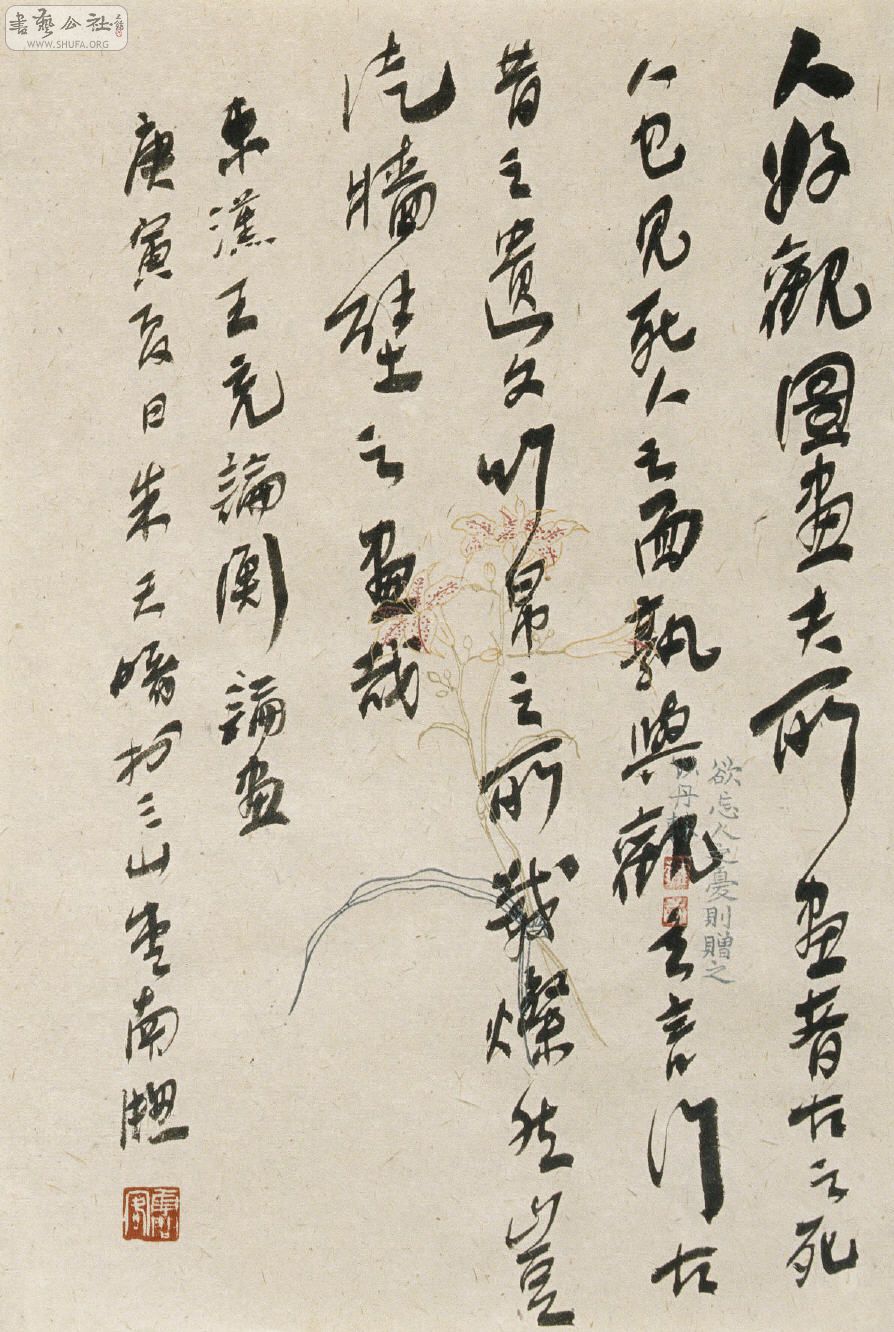 書藝公社
WWW.SHUFA.ORG
人好觀圖畫夫所畫者古之死
人也見死人之面孰與觀之言行古
昔之遺文竹帛之所載燦然豈
徒牆壁之畫哉
東漢王充論衡論畫
庚寅夏日朱天曙於三山堂南牖
欲忘人之憂則贈之
以丹棘